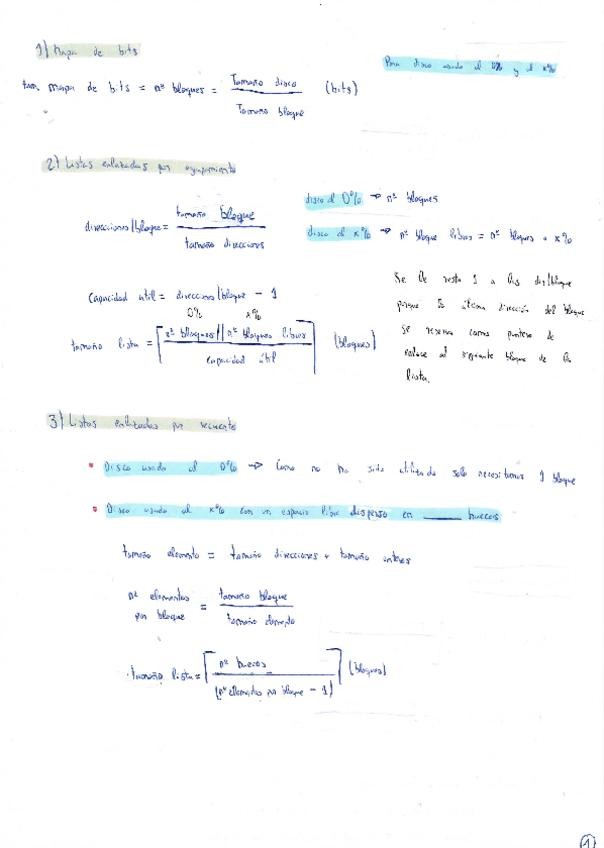 1) Mapa de bits
Para disco usado al 0% y al x%
tam. mapa de bits = nº bloques = Tamaño disco / Tamaño bloque (bits)
2) Listas enlazadas por agrupamiento
disco al 0% → nº bloques
direcciones/bloque = tamaño bloque / tamaño direcciones
disco al x% → nº bloque libres = nº bloques · x%
Capacidad util = direcciones/bloque - 1
0% x%
tamaño lista = ⌈nº bloques || nº bloques libres / capacidad útil⌉ (bloques)
Se le resta 1 a las dir/bloque
porque la última dirección del bloque
se reserva como puntero de
enlace al siguiente bloque de la
lista.
3) Listas enlazadas por recuento
• Disco usado al 0% → Como no ha sido utilizado solo necesitamos 1 bloque
• Disco usado al x% con un espacio libre disperso en ______ huecos
tamaño elemento = tamaño direcciones + tamaño enteros
nº elementos por bloque = tamaño bloque / tamaño elemento
tamaño lista = ⌈nº huecos / (nº elementos por bloque - 1)⌉ (bloques)
1